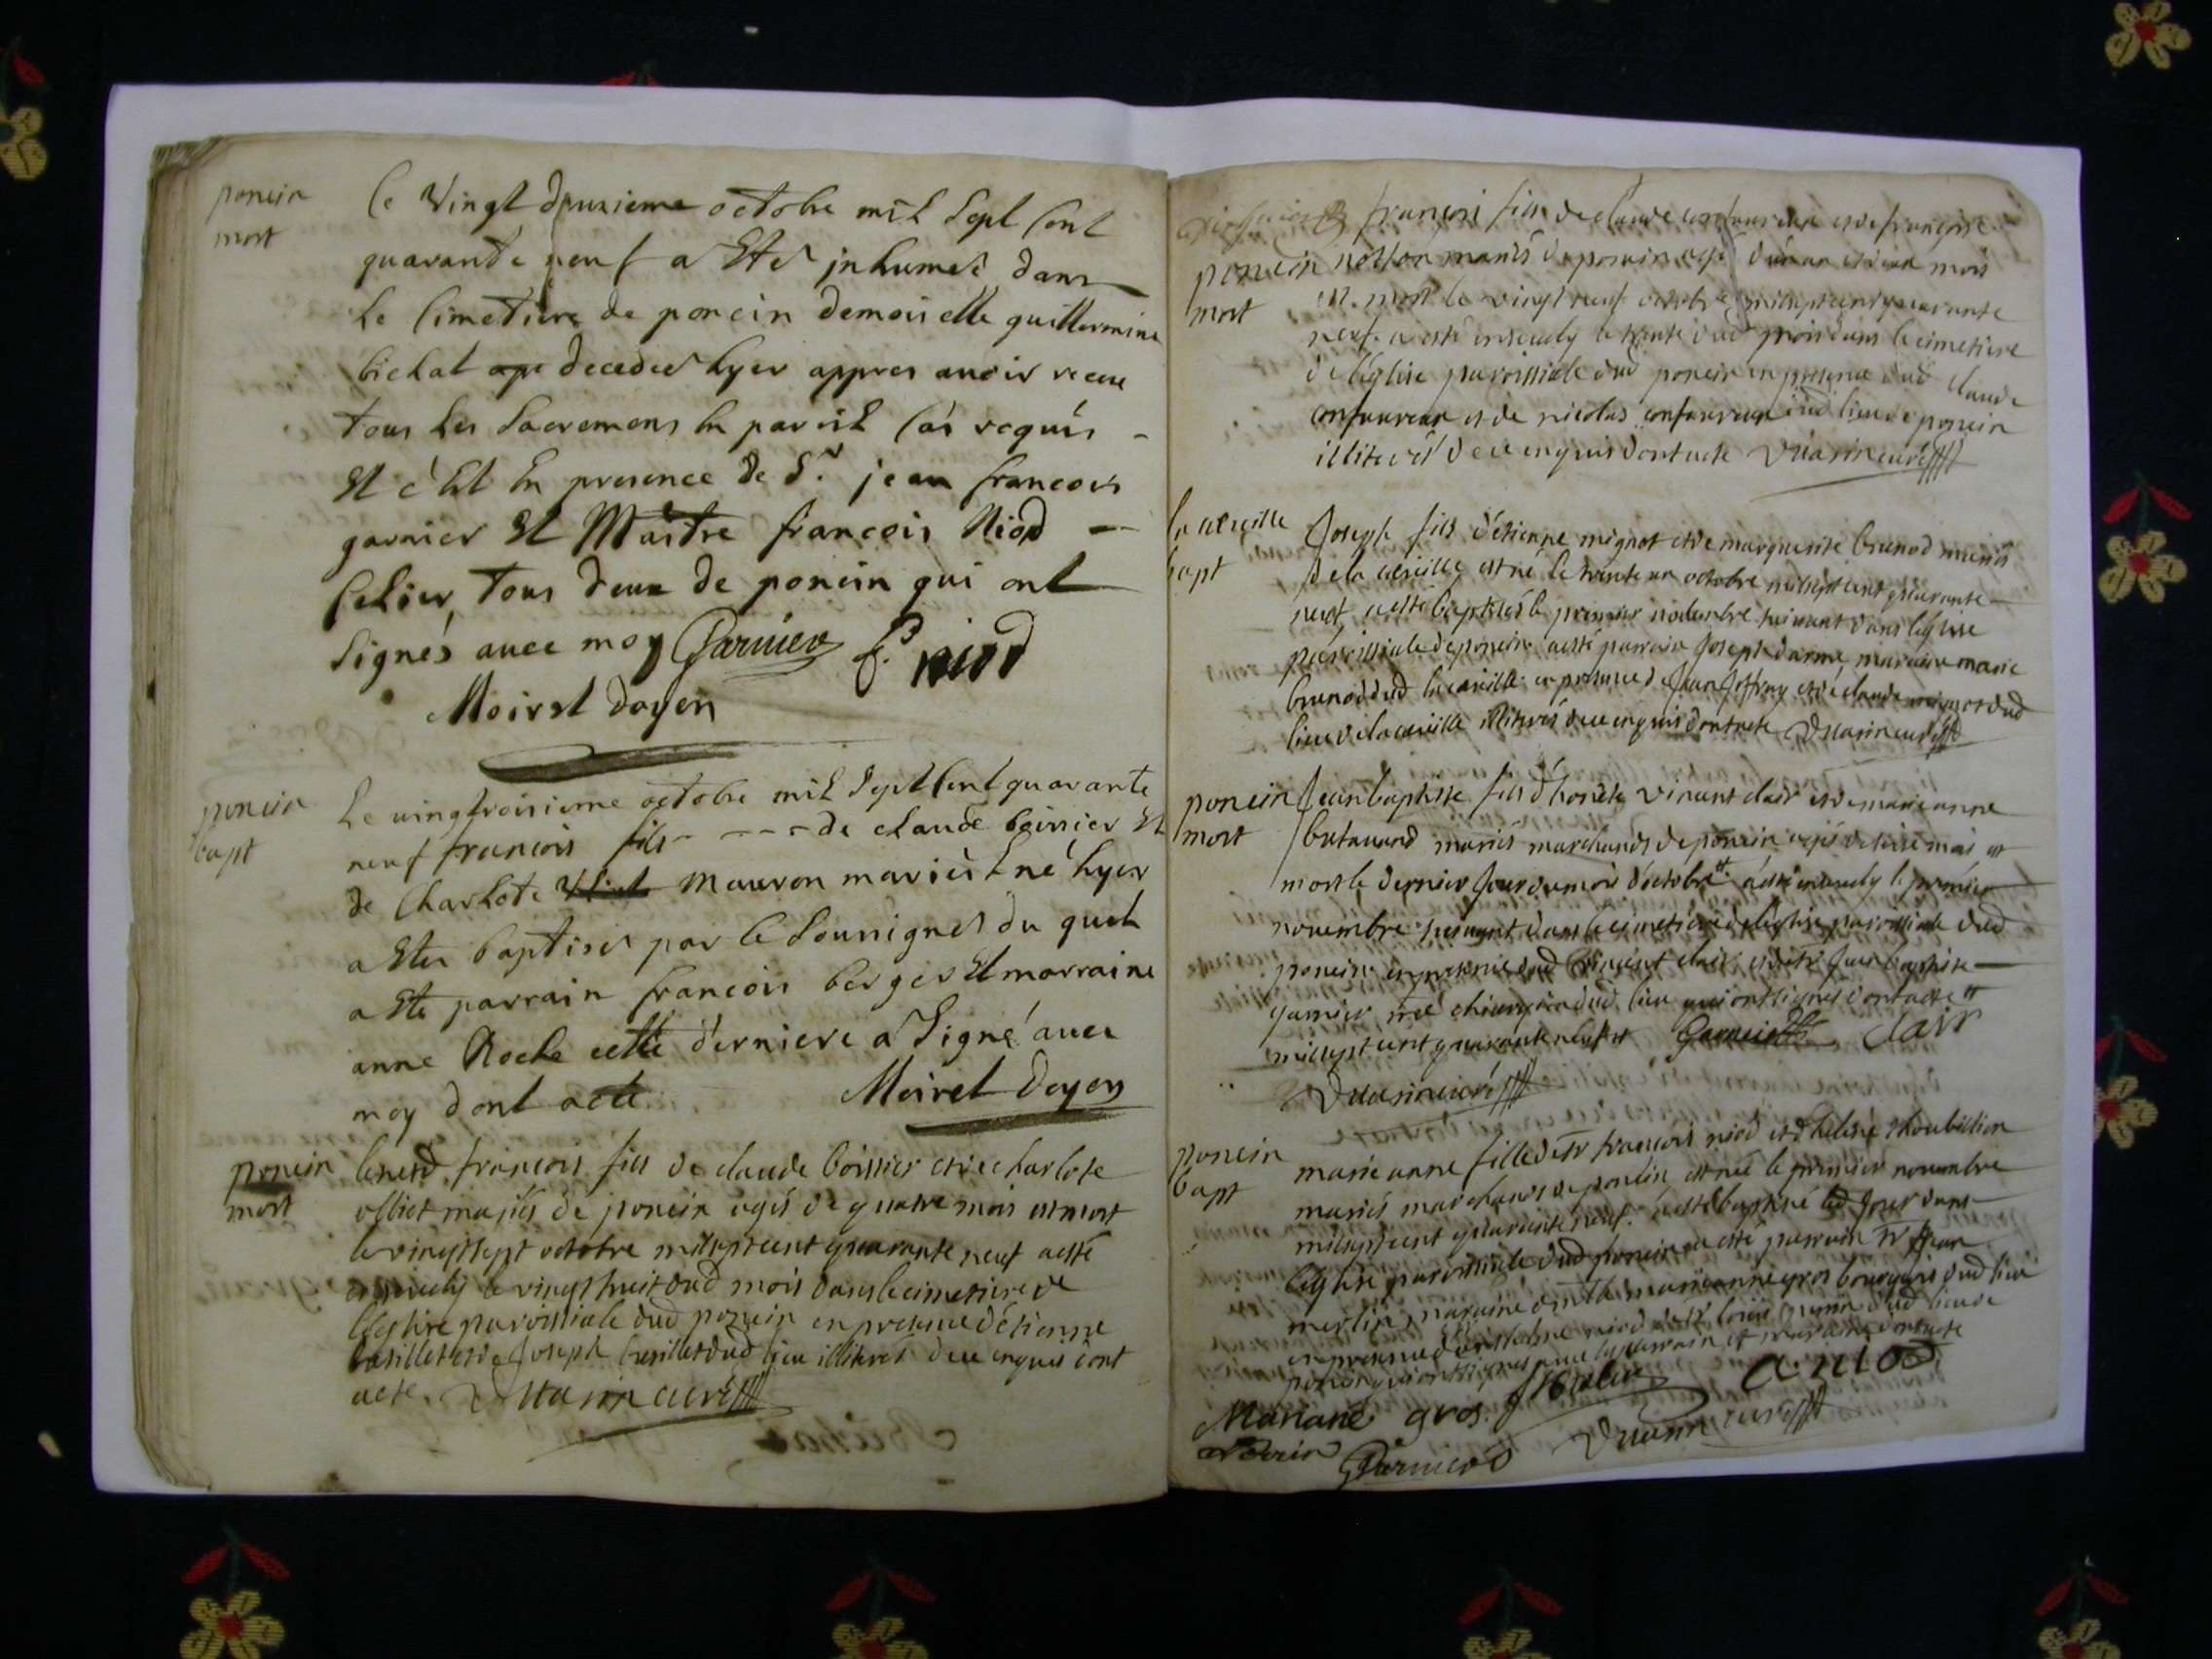 poncin
mort
Le Vingt deuxieme octobre mil Sept Cent
quarante neuf a Eter jnhumée dans
Le Cimetiere de poncin demoiselle guillermine
bichat decedée hyer appres avoir receu
tous les Sacremens En pareil Cas requis -
Et c'Est En presence de Sr. jean francois
garnier Et Maistre francois Niod -
Selier tous deux de poncin qui ont
Signés avec moy Garnier f. niod
Moirel doyen
poncin
bapt
Le vingtroisieme octobre mil Sept Cent quarante
neuf francois fils - - - - de claude boissier Et
de Charlote Mauron mariés Est né hyer
a Eter baptiser par le Soussigner du quel
a Ete parrain francois berger Et marraine
anne Roche cette derniere a Signé avec
moy dont acte Moirel doyen
poncin
mort
francois fils de claude boissier et de charlote
mariés de poncin agés de quatre mois est mort
le vingt sept octobre mil sept cent quarante neuf a esté
ensevely le vingt huit dud mois dans le cimetiere de
l'eglise paroissiale dud poncin en presence d'étienne
et de Joseph dud lieu illiterés de ce enquis dont
acte Duarin curé
poncin
mort
francois fils de claude confavreux et de francoise
mariés de poncin agé d'un an et d'un mois
est mort le vingt neuf octobre mil sept cent quarante
neuf a esté ensevely le trente dud mois dans le cimetiere
de l'église paroissiale dud poncin en presence dud claude
confavreux et de nicolas confavreux dud lieu de poncin
illiterés de ce enquis dont acte Duarin curé
la cueille
bapt
Joseph fils d'étienne mignot et de marguerite brunod mariés
de la cueille est né le trente un octobre mil sept cent quarante
neuf a esté baptisés le premier novembre suivant dans l'eglise
paroissiale de poncin a esté parrain Joseph darme, maraine marie
brunod dud la cueille en presence de Jean et de claude mignot dud
lieu de la cueille illiterés de ce enquis dont acte Duarin curé
poncin
mort
Jean baptiste fils d'honète vincent clair et de marie anne
butavand mariés marchands de poncin agés de seize mois est
mort le dernier Jour du mois d'octobre et a esté ensevely le premier
novembre suivant dans le cimetiere de l'église paroissiale dud
poncin en presence dud vincent clair et de sr Jean baptiste
garnier mtre chirurgien dud lieu qui ont signés dont acte
mil sept cent quarante neuf Garnier clair
Duarin curé
poncin
bapt
marie anne fille de sr francois niod et d'helene
mariés marchands de poncin est née le premier novembre
mil sept cent quarante neuf a esté baptisé led Jour dans
l'eglise paroissiale dud poncin a esté parrain sr Jean
merlin, maraine marie anne gros bourgeois dud lieu
en presence niod et de sr louis perrin dud lieu de
poncin qui ont signés avec le parrain et maraine dont acte
Mariane gros J Merlin A. niod
Perrin Garnier Duarin curé